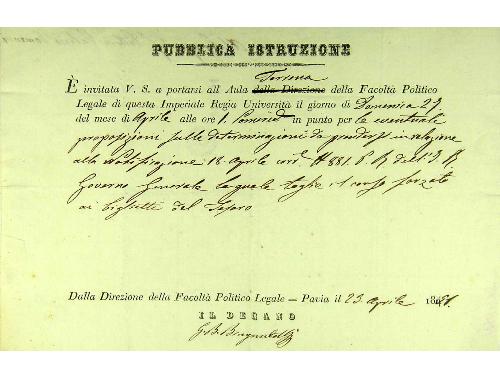 PUBBLICA ISTRUZIONE
Terrena
È invitata V. S. a portarsi all Aula della Direzione della Facoltà Politico
Legale di questa Imperiale Regia Università il giorno di Domenica 29
del mese di Aprile alle ore 1. Pomerid in punto per le eventuali
proposizioni sulle determinazioni da prendersi in relazione
alla Notificazione 18 Aprile N 881. dell'I. R.
Governo Generale la quale toglie il corso forzato
ai biglietti del Tesoro
Dalla Direzione della Facoltà Politico Legale — Pavia il 23. Aprile 18
IL DECANO